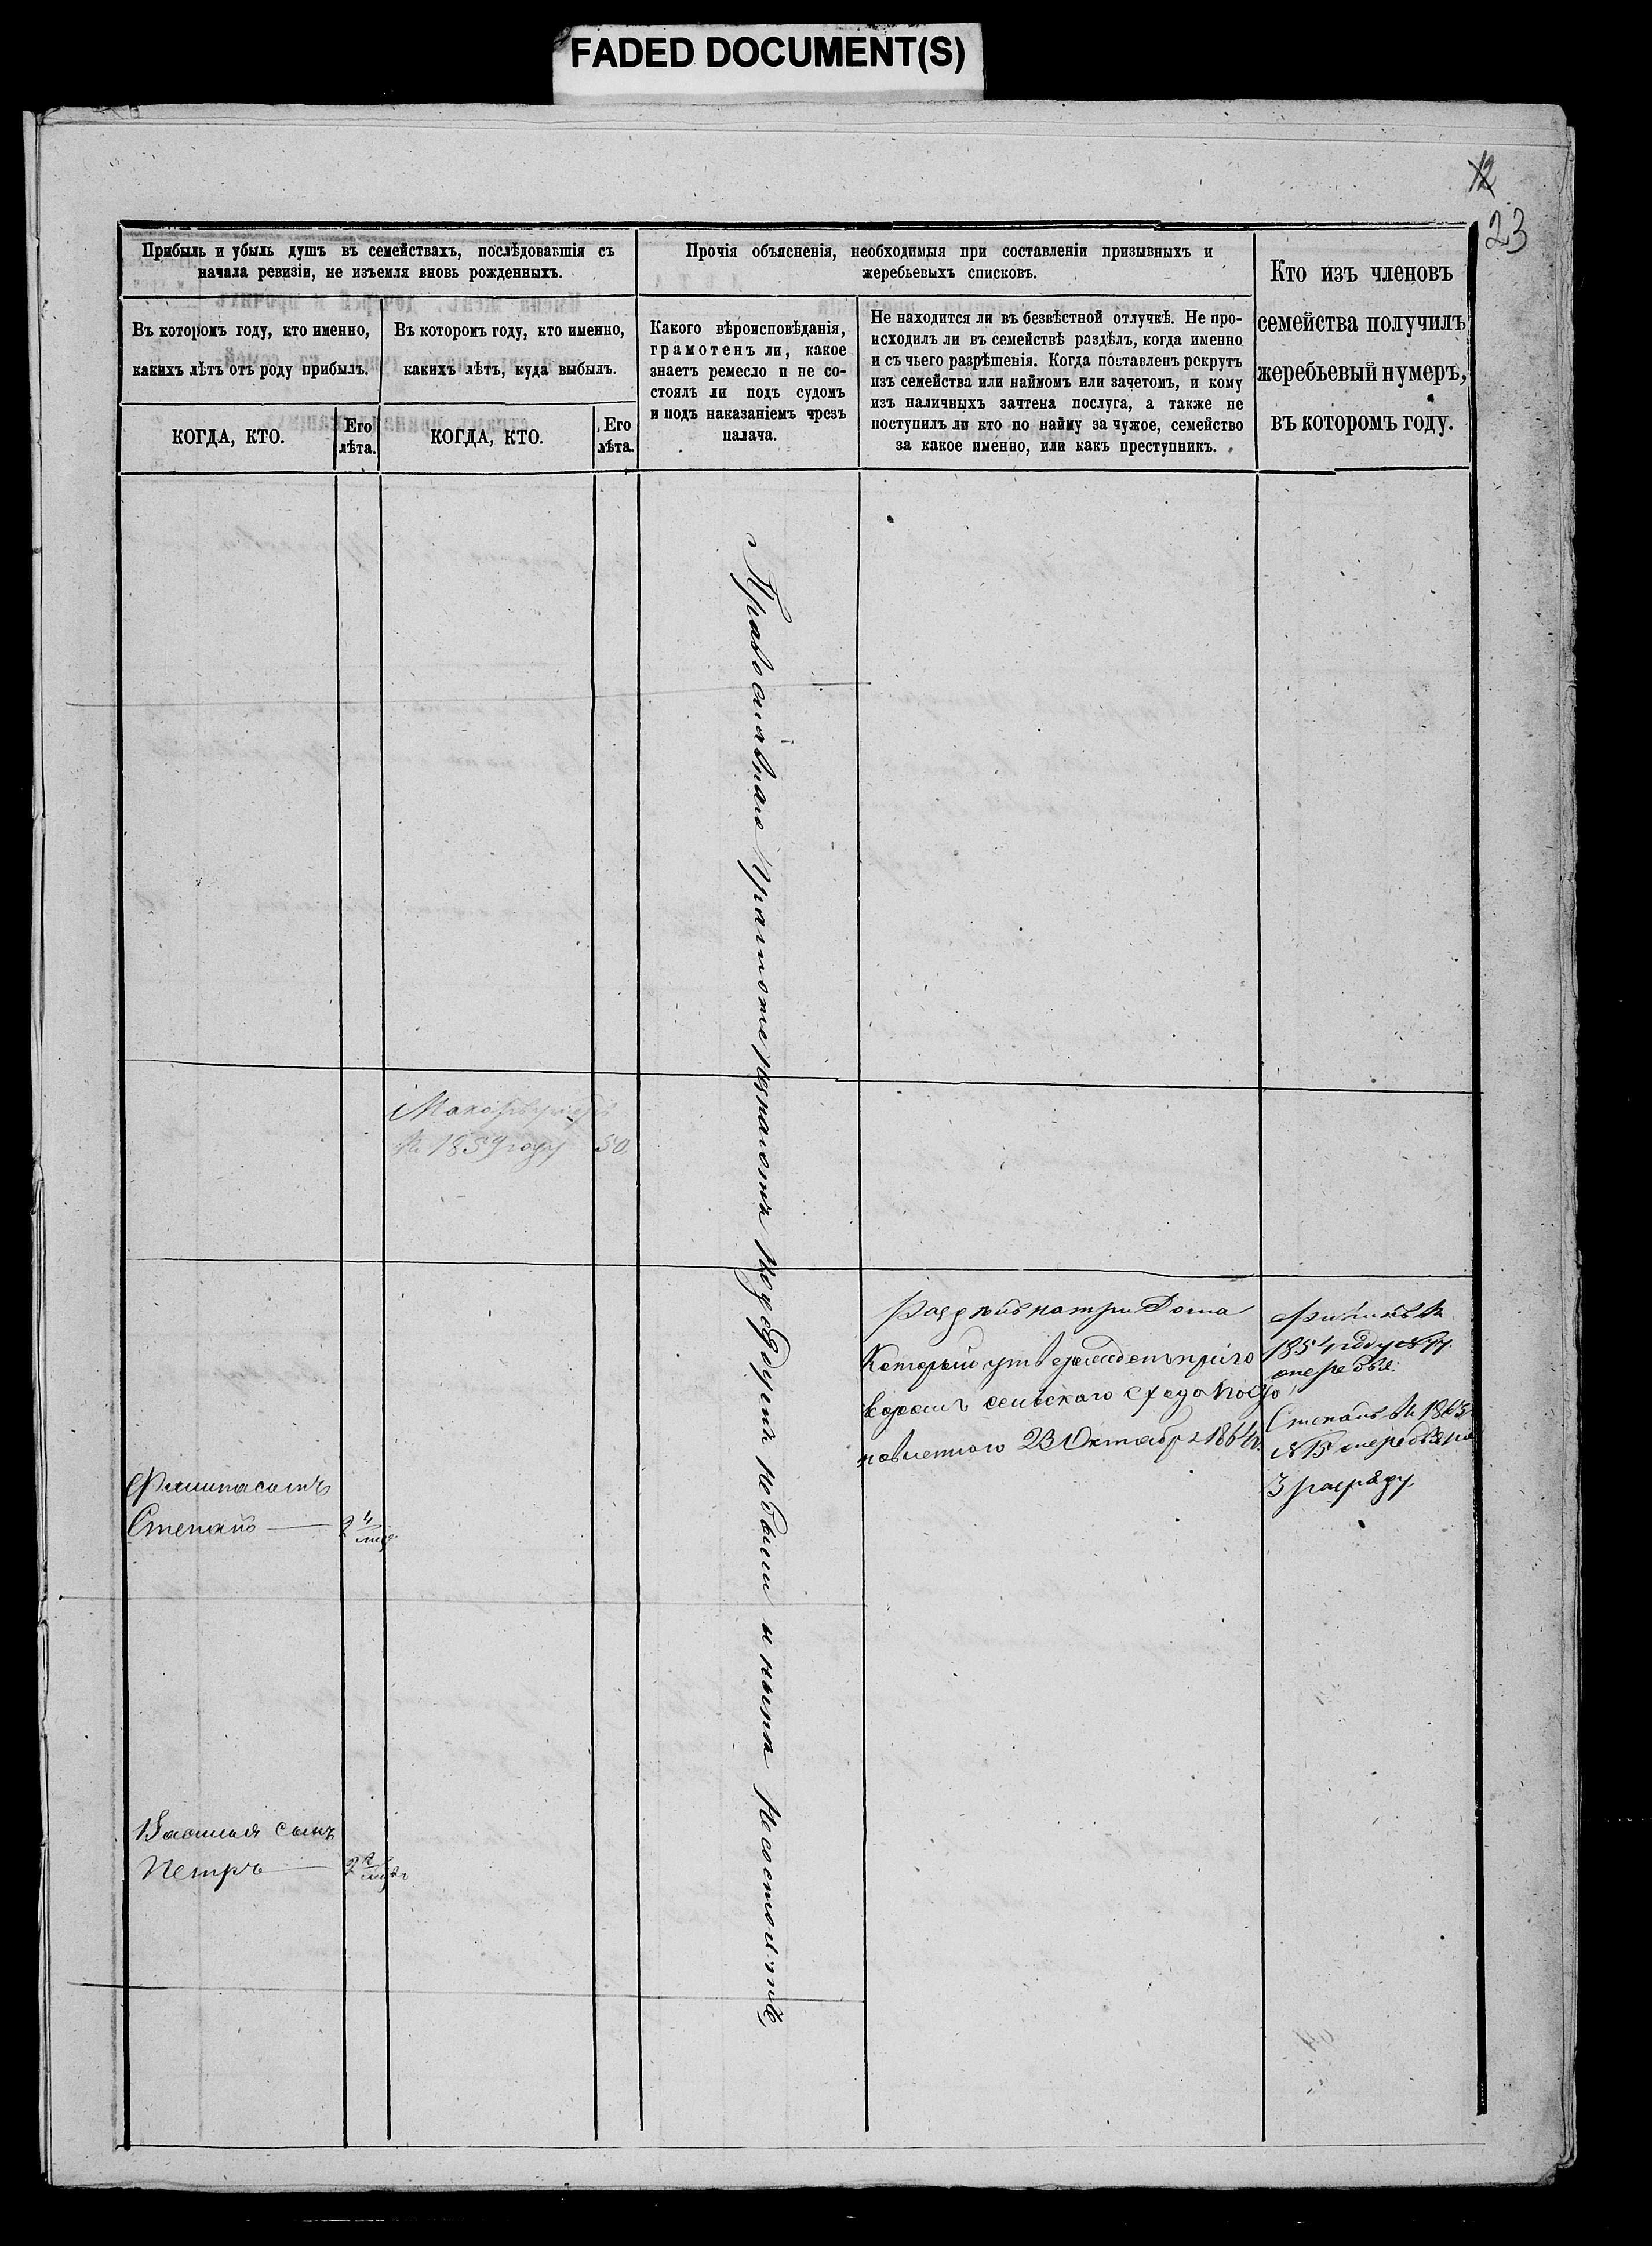 FADED DOCUMENT(S)
12
23
Прибыль и убыль душъ въ семействахъ, послѣдовавшія съ
начала ревизіи, не изъемля вновь рожденныхъ.
Въ которомъ году, кто именно,
какихъ лѣтъ отъ роду прибылъ.
КОГДА, КТО.
Его
лѣта.
Въ которомъ году, кто именно,
какихъ лѣтъ, куда выбылъ.
КОГДА, КТО.
Его
лѣта.
Прочія объясненія, необходимыя при составленіи призывныхъ и
жеребьевыхъ списковъ.
Какого вѣроисповѣданія,
грамотенъ ли, какое
знаетъ ремесло и не со-
стоялъ ли подъ судомъ
и подъ наказаніемъ чрезъ
палача.
Не находится ли въ безвѣстной отлучкѣ. Не про-
исходилъ ли въ семействѣ раздѣлъ, когда именно
и съ чьего разрѣшенія. Когда поставленъ рекрутъ
изъ семейства или наймомъ или зачетомъ, и кому
изъ наличныхъ зачтена послуга, а также не
поступилъ ли кто по найму за чужое, семейство
за какое именно, или какъ преступникъ.
Кто изъ членовъ
семейства получилъ
жеребьевый нумеръ,
въ которомъ году.
Православнаго Грамоте незнаютъ подсудомъ небыли и нынѣ несостоятъ
въ 1859 году 50
Раздѣлъ на три Дома
Который утвержденъ приго
воромъ сельскаго схода поста
новленнаго 23 Октября 1864 г.
Филипъ въ
1854 году №
очередья.
Степанъ въ 1863
№ 15 очередья по
3 разряду
Филипа сынъ
Степанъ
Василья сынъ
Петръ